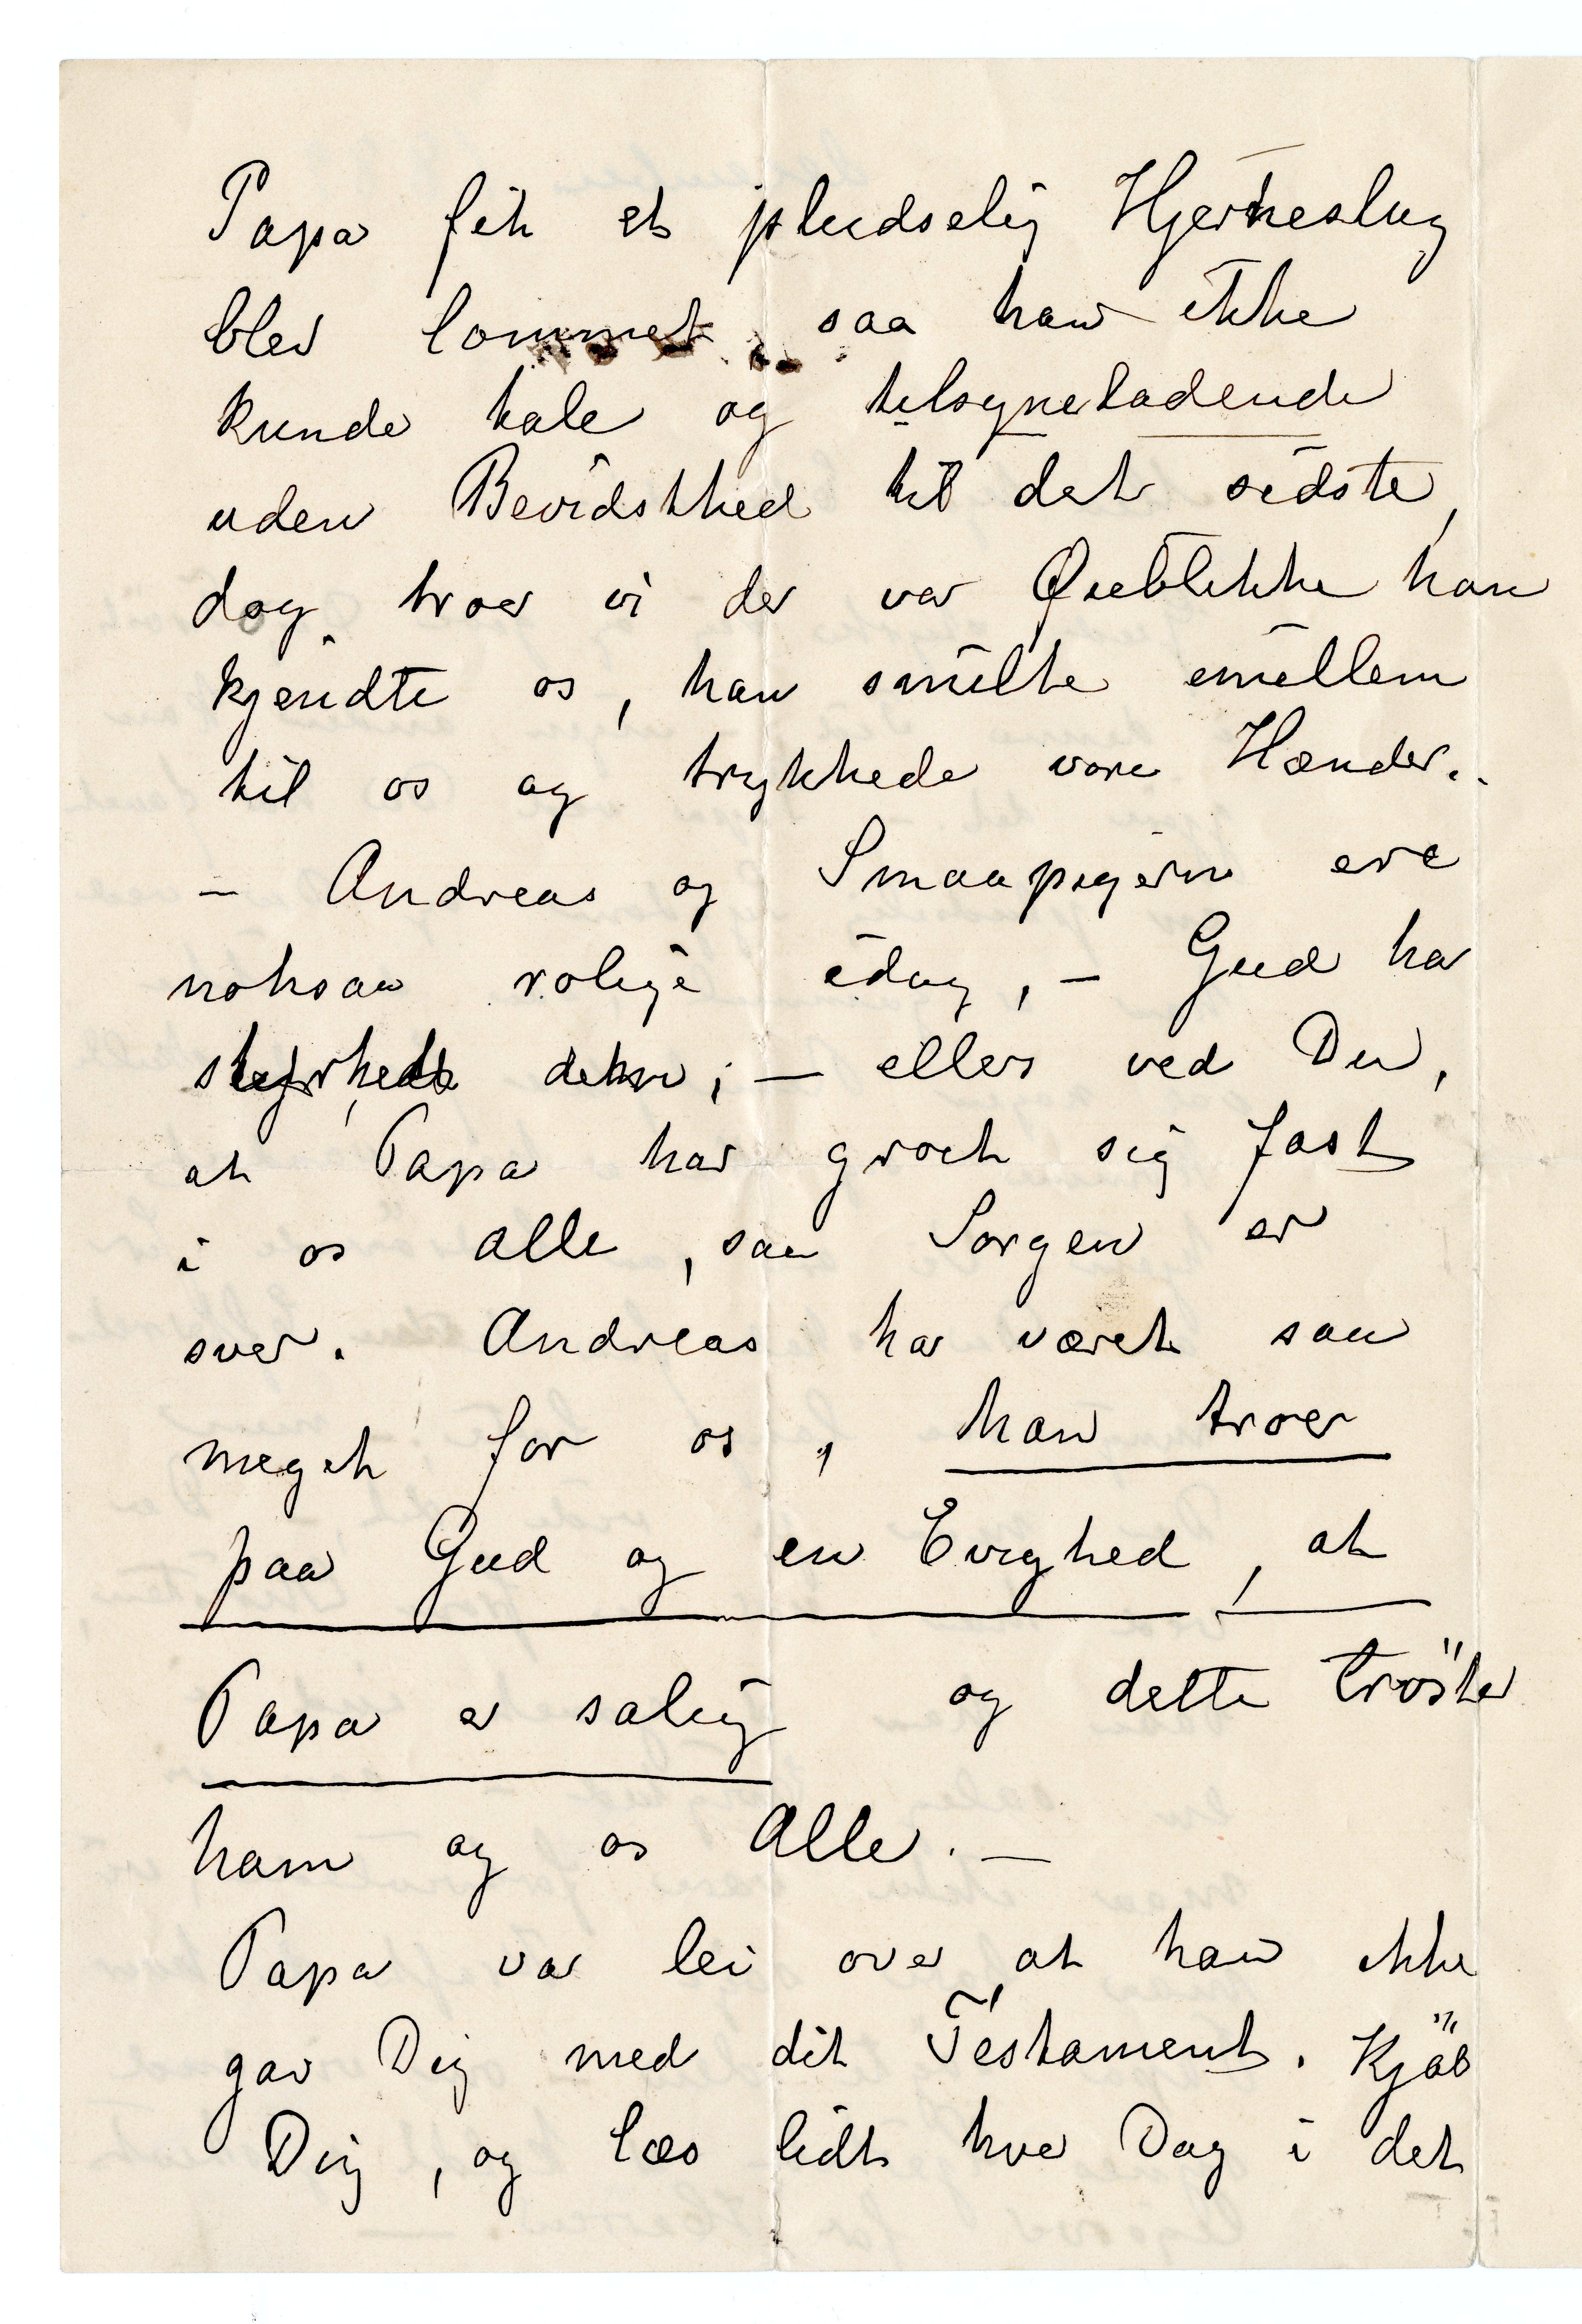 Papa fik et pludselig Hjerneslag
blev lammet, saa han ikke
kunde tale og tilsyneladende
uden Bevidsthed til det sidste,
dog troer vi der var Øieblikke han
kjendte os, han smilte emellem
til os og trykkede vore Hænder.
– Andreas og Smaapigerne ere
noksaa rolige idag, – Gud har
styrket dem; – ellers ved Du,
at Papa har groet sig fast
i os alle, saa Sorgen er
svær. Andreas har været saa
meget for os, han troer
paa Gud og en Evighed, at
Papa er salig og dette tröster
ham og os Alle. –
Papa var lei over at han ikke
gav Dig med dit Testament. Kjöb
Dig, og læs lidt hver Dag i det